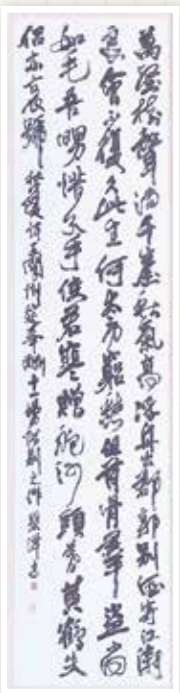 萬壑樹聲滿千崖秋氣高浮舟出郡郭別酒寄江濤
良會不復久此生何太勞窮愁但有骨群盜尚
如毛吾舅惜分手使君寒贈袍沙頭暮黃鶴失
侶亦哀號 王閬州筵奉酬十一舅惜別之作